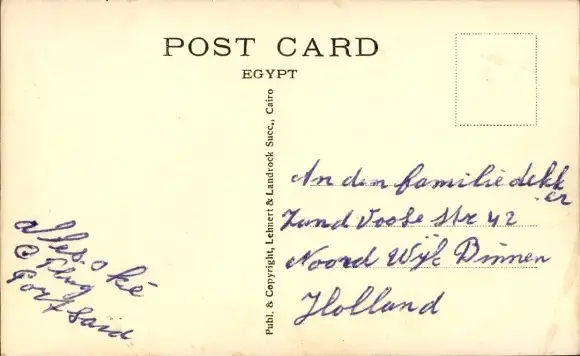 POST CARD
EGYPT
Publ. & Copyright, Lehnert & Landrock Succ., Cairo
An den familie dekk
er
Zand Voose str 42
Noord Wijk Binnen
Holland
alles oké
Port Said